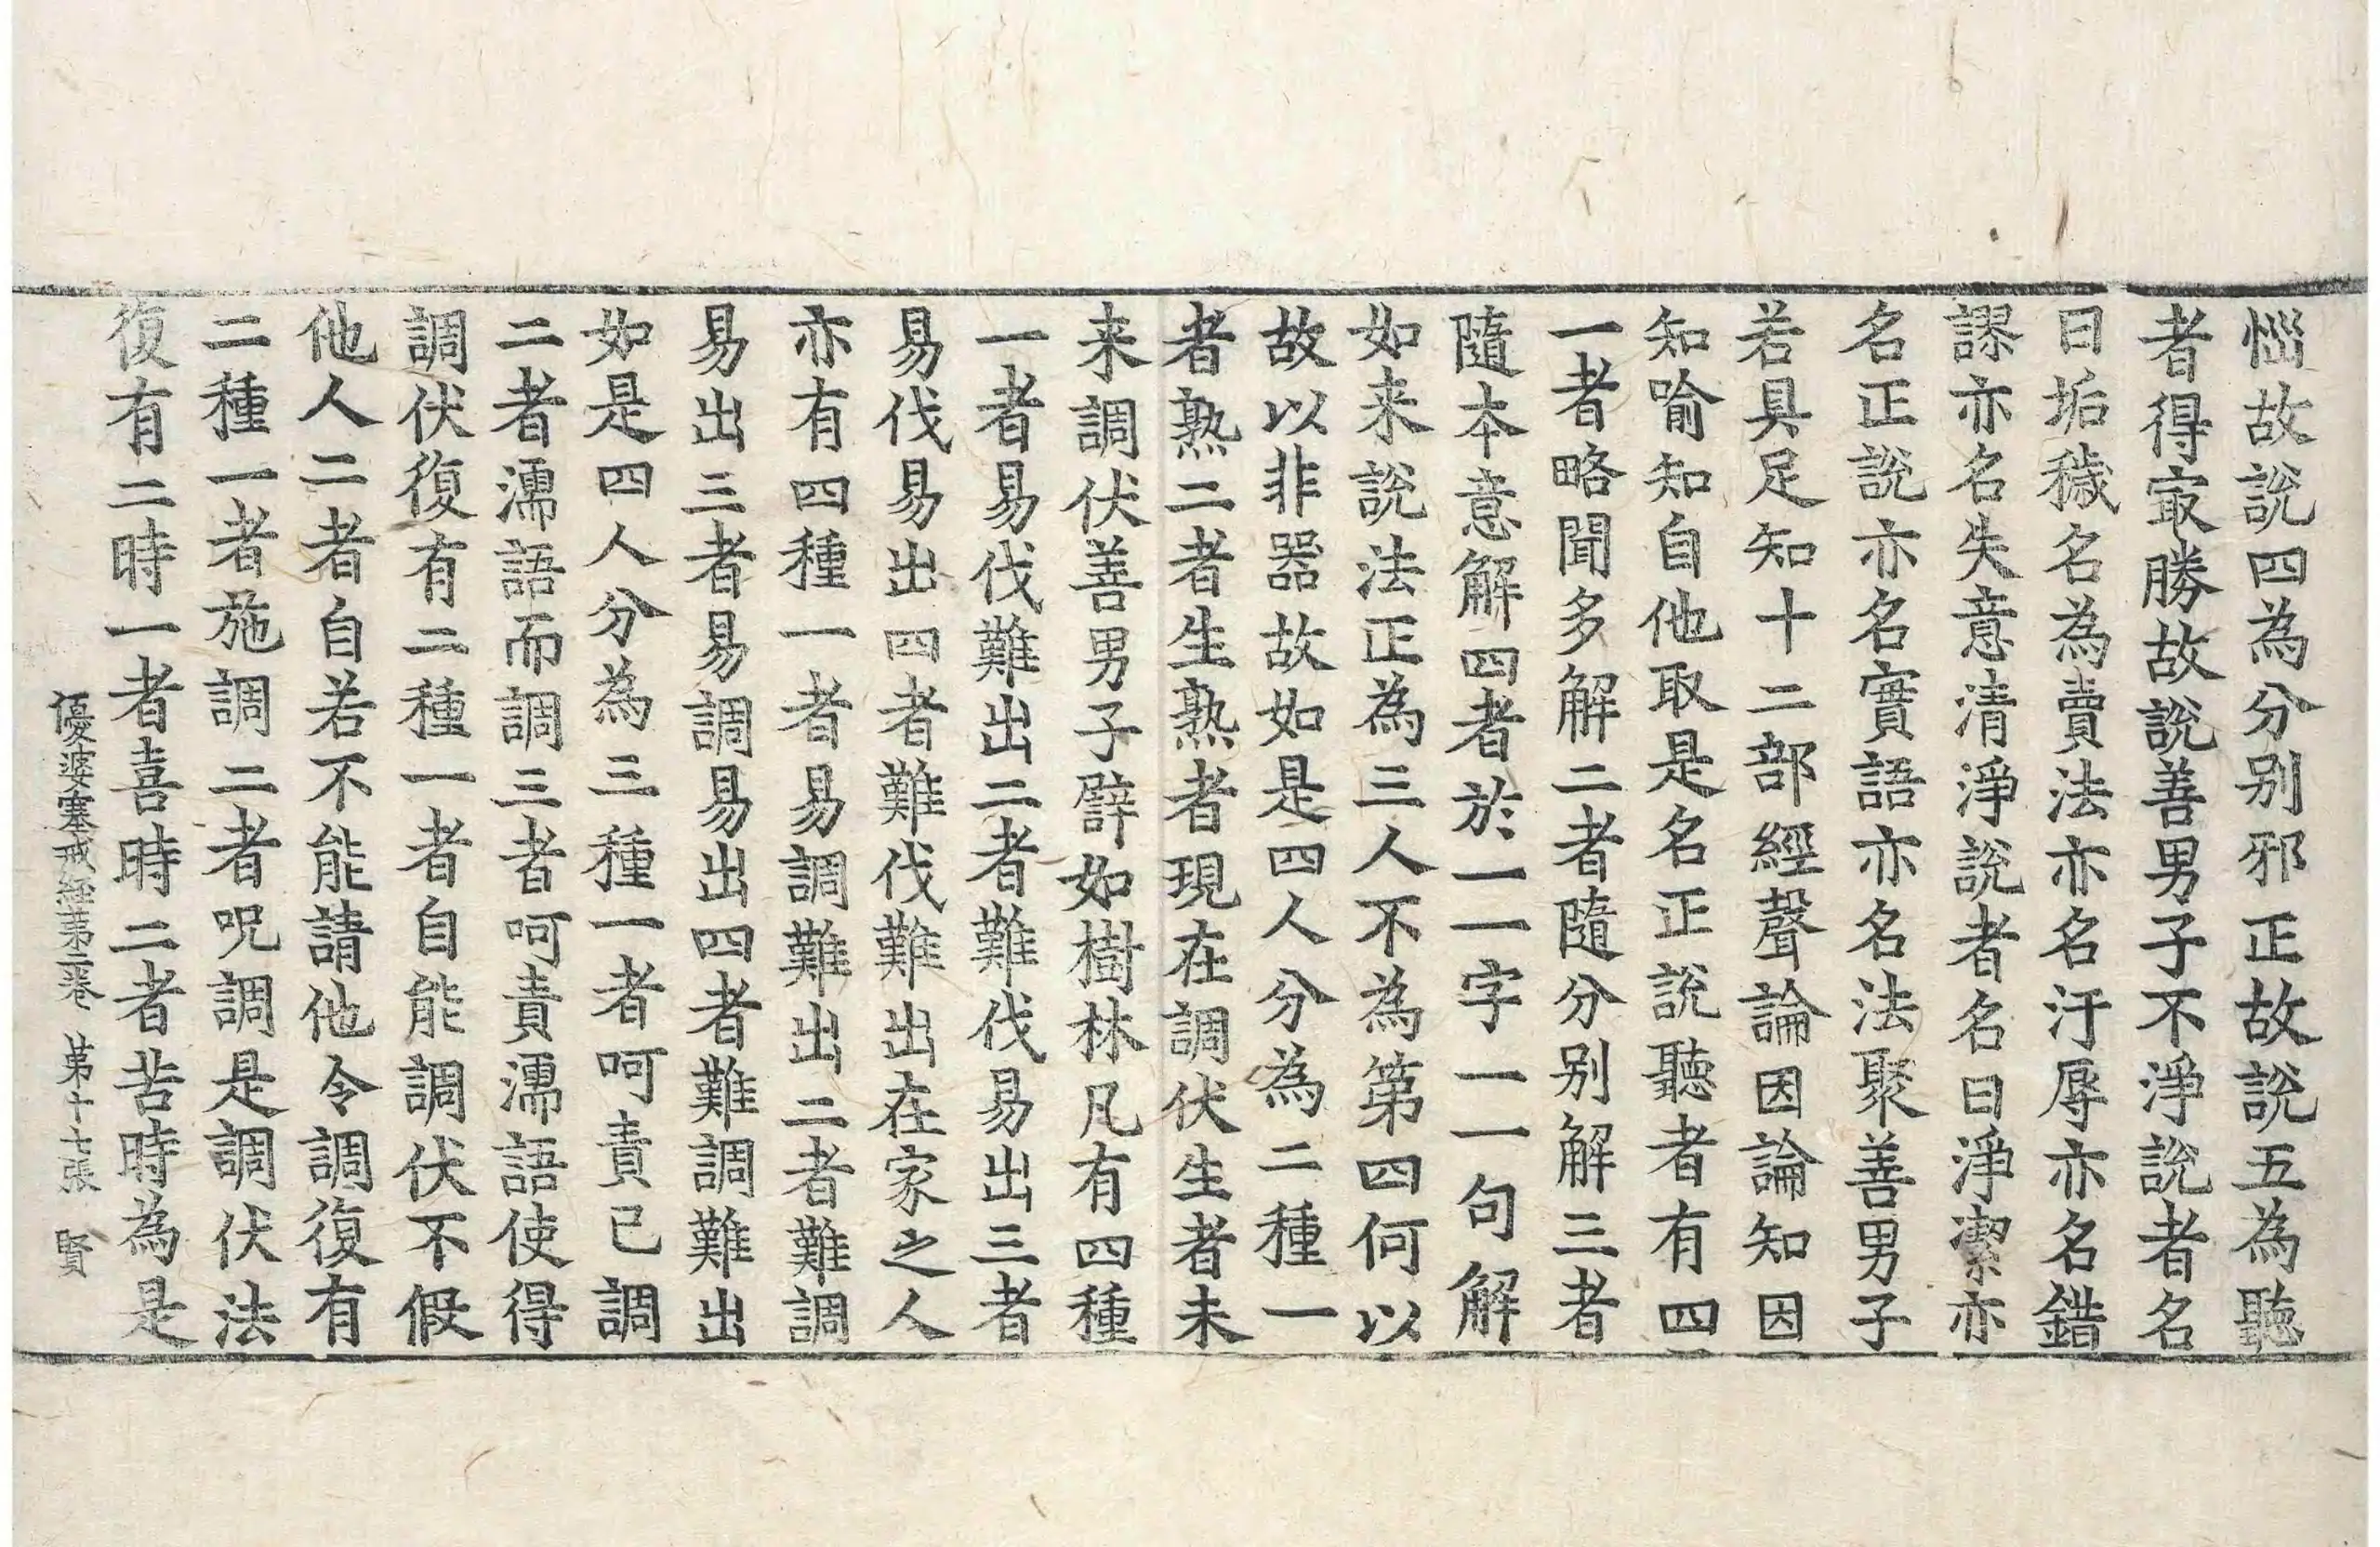 惱故說四為分别邪正故說五為聽
者得㝡勝故說善男子不淨說者名
曰垢穢名為賣法亦名汙辱亦名錯
謬亦名失意清淨說者名曰淨潔亦
名正說亦名實語亦名法聚善男子
若具足知十二部經聲論因論知因
知喻知自他取是名正說聽者有四
一者略聞多解二者隨分别解三者
隨本意解四者於一一字一一句解
如来說法正為三人不為第四何以
故以非器故如是四人分為二種一
者熟二者生熟者現在調伏生者未
来調伏善男子譬如樹林凡有四種
一者易伐難出二者難伐易出三者
易伐易出四者難伐難出在家之人
亦有四種一者易調難出二者難調
易出三者易調易出四者難調難出
如是四人分為三種一者呵責已調
二者濡語而調三者呵責濡語使得
調伏復有二種一者自能調伏不假
他人二者自若不能請他令調復有
二種一者施調二者呪調是調伏法
復有二時一者喜時二者苦時為是
優婆塞戒經第二卷 第十七張 賢